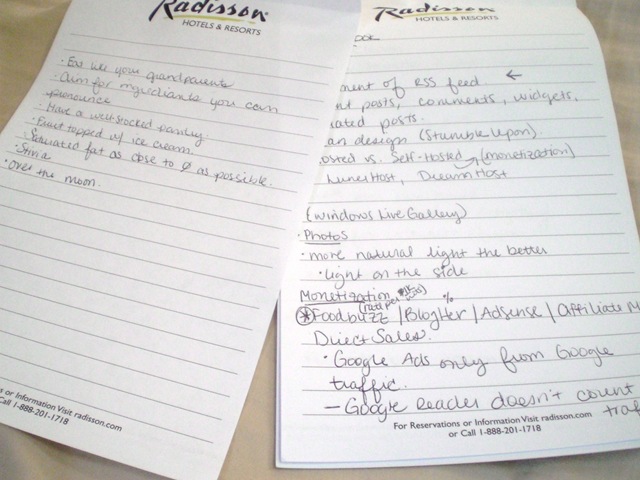 Radisson
HOTELS & RESORTS
· Eat like your grandparents
· Aim for ingrediants you can
pronounce
· Have a well-stocked pantry.
· Fruit topped w/ ice cream.
· Saturated fat as close to 0 as possible.
· Stivia
· Over the moon.
or Information Visit radisson.com
Call 1-888-201-1718
Radisson
HOTELS & RESORTS
ook
ment of RSS feed ←
nt posts, comments, widgets,
lated posts.
an design (Stumble Upon)
osted vs. Self-Hosted (monetization)
LunerHost, DreamHost
(Windows Live Gallery)
· Photos
· more natural light the better
· light on the side
Monetization
%
Foodbuzz / BlogHer / AdSense / Affiliate M
Direct Sales.
· Google Ads only from Google
traffic.
— Google Reader doesn't count
traf
For Reservations or Information Visit radisson.com
or Call 1-888-201-1718